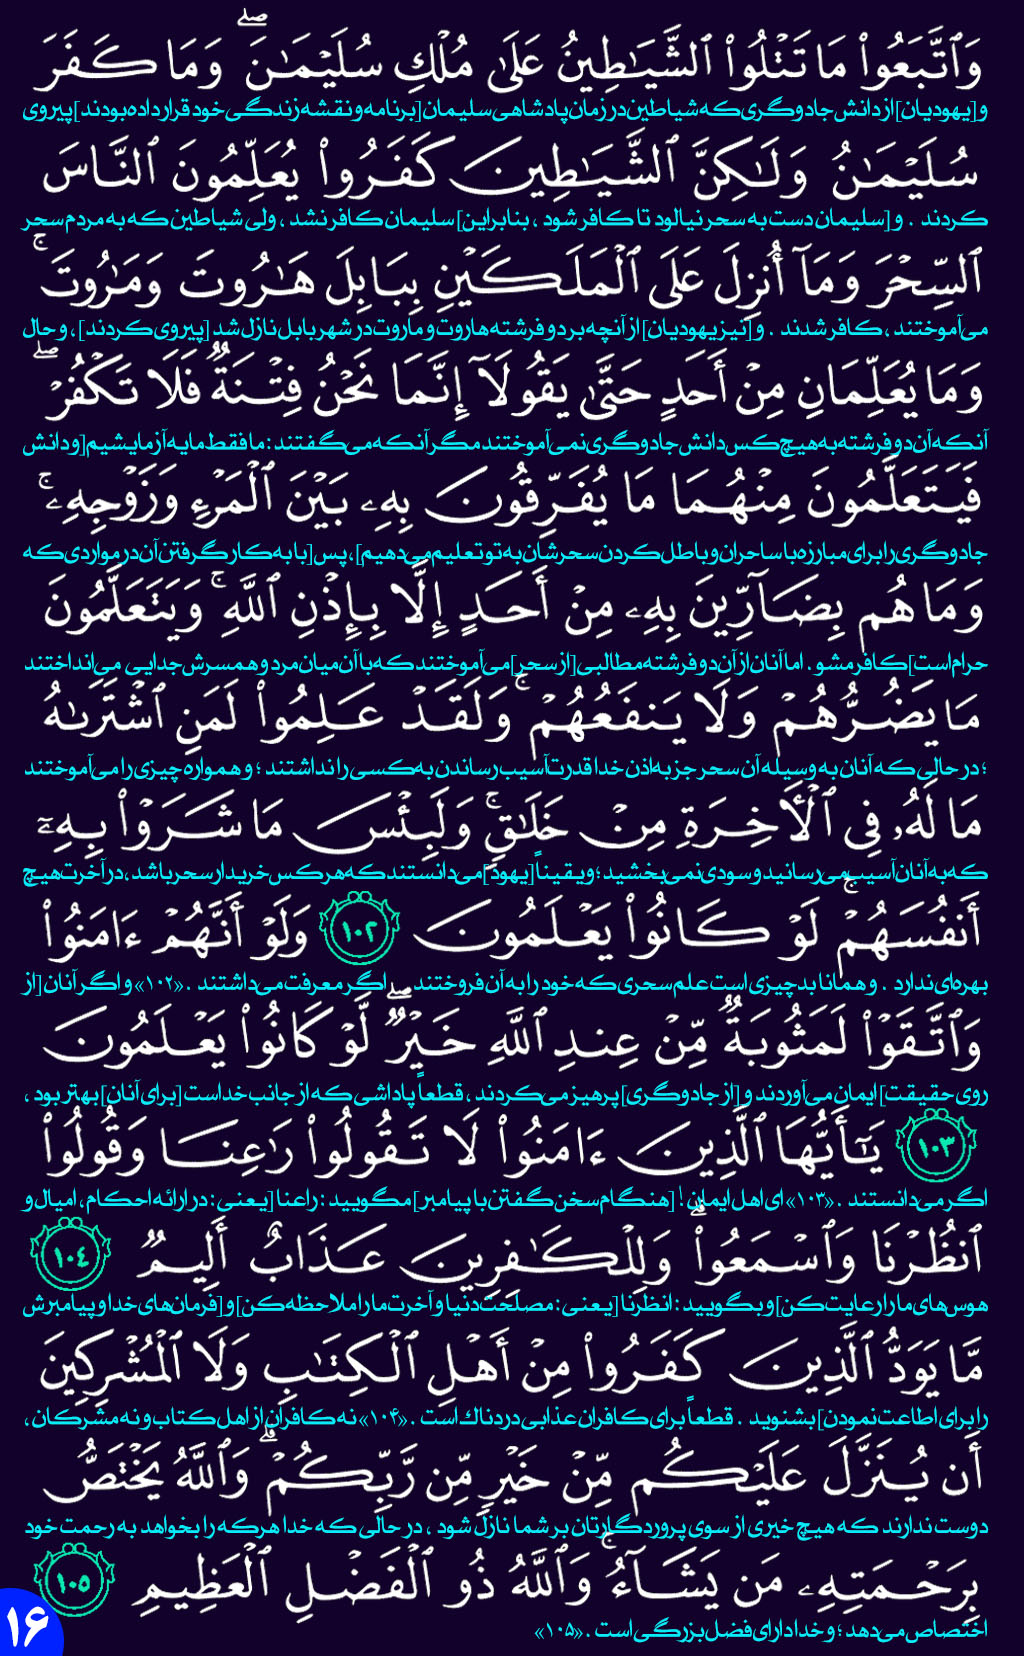 وَٱتَّبَعُوا۟ مَا تَتْلُوا۟ ٱلشَّيَـٰطِينُ عَلَىٰ مُلْكِ سُلَيْمَـٰنَ ۖ وَمَا كَفَرَ
و [یهودیان] از دانش جادوگری که شیاطین در زمان پادشاهی سلیمان [برنامه و نقشه زندگی خود قرار داده بودند] پیروی
سُلَيْمَـٰنُ وَلَـٰكِنَّ ٱلشَّيَـٰطِينَ كَفَرُوا۟ يُعَلِّمُونَ ٱلنَّاسَ
کردند . و [سلیمان دست به سحر نیالود تا کافر شود ، بنابراین] سلیمان کافر نشد ، ولی شیاطین که به مردم سحر
ٱلسِّحْرَ وَمَآ أُنزِلَ عَلَى ٱلْمَلَكَيْنِ بِبَابِلَ هَـٰرُوتَ وَمَـٰرُوتَ ۚ
می‌آموختند ، کافر شدند . و [نیز یهودیان] از آنچه بر دو فرشته هاروت و ماروت در شهر بابل نازل شد [پیروی کردند] ، و حال
وَمَا يُعَلِّمَانِ مِنْ أَحَدٍ حَتَّىٰ يَقُولَآ إِنَّمَا نَحْنُ فِتْنَةٌ فَلَا تَكْفُرْ ۖ
آنکه آن دو فرشته به هیچ کس دانش جادوگری نمی‌آموختند مگر آنکه می‌گفتند : ما فقط مایه آزمایشیم [و دانش
فَيَتَعَلَّمُونَ مِنْهُمَا مَا يُفَرِّقُونَ بِهِۦ بَيْنَ ٱلْمَرْءِ وَزَوْجِهِۦ ۚ
جادوگری را برای مبارزه با ساحران و باطل کردن سحرشان به تو تعلیم می‌دهیم] ، پس [با به کار گرفتن آن در مواردی که
وَمَا هُم بِضَآرِّينَ بِهِۦ مِنْ أَحَدٍ إِلَّا بِإِذْنِ ٱللَّهِ ۚ وَيَتَعَلَّمُونَ
حرام است] کافر مشو . اما آنان از آن دو فرشته مطالبی [از سحر] می‌آموختند که با آن میان مرد و همسرش جدایی می‌انداختند
مَا يَضُرُّهُمْ وَلَا يَنفَعُهُمْ ۚ وَلَقَدْ عَلِمُوا۟ لَمَنِ ٱشْتَرَىٰهُ
؛ در حالی که آنان به وسیله آن سحر جز به اذن خدا قدرت آسیب رساندن به کسی را نداشتند ؛ و همواره چیزی را می‌آموختند
مَا لَهُۥ فِى ٱلْـَٔاخِرَةِ مِنْ خَلَـٰقٍ ۚ وَلَبِئْسَ مَا شَرَوْا۟ بِهِۦٓ
که به آنان آسیب می‌رسانید و سودی نمی‌بخشید ؛ و یقیناً [یهود] می‌دانستند که هر کس خریدار سحر باشد ، در آخرت هیچ
أَنفُسَهُمْ ۚ لَوْ كَانُوا۟ يَعْلَمُونَ ١٠٢ وَلَوْ أَنَّهُمْ ءَامَنُوا۟
بهره‌ای ندارد . و همانا بد چیزی است علم سحری که خود را به آن فروختند ، اگر معرفت می‌داشتند . «۱۰۲» و اگر آنان [از
وَٱتَّقَوْا۟ لَمَثُوبَةٌ مِّنْ عِندِ ٱللَّهِ خَيْرٌ ۖ لَّوْ كَانُوا۟ يَعْلَمُونَ
روی حقیقت] ایمان می‌آوردند و [از جادوگری] پرهیز می‌کردند ، قطعاً پاداشی که از جانب خداست [برای آنان] بهتر بود ،
١٠٣ يَـٰٓأَيُّهَا ٱلَّذِينَ ءَامَنُوا۟ لَا تَقُولُوا۟ رَٰعِنَا وَقُولُوا۟
اگر می‌دانستند . «۱۰۳» ای اهل ایمان ! [هنگام سخن گفتن با پیامبر] مگویید : راعنا [یعنی : در ارائه احکام ، امیال و
ٱنظُرْنَا وَٱسْمَعُوا۟ ۗ وَلِلْكَـٰفِرِينَ عَذَابٌ أَلِيمٌ ١٠٤
هوس‌های ما را رعایت کن] و بگویید : انظرنا [یعنی : مصلحت دنیا و آخرت ما را ملاحظه کن] و [فرمان‌های خدا و پیامبرش
مَّا يَوَدُّ ٱلَّذِينَ كَفَرُوا۟ مِنْ أَهْلِ ٱلْكِتَـٰبِ وَلَا ٱلْمُشْرِكِينَ
را برای اطاعت نمودن] بشنوید . قطعاً برای کافران عذابی دردناک است . «۱۰۴» نه کافران از اهل کتاب و نه مشرکان ،
أَن يُنَزَّلَ عَلَيْكُم مِّنْ خَيْرٍ مِّن رَّبِّكُمْ ۗ وَٱللَّهُ يَخْتَصُّ
دوست ندارند که هیچ خیری از سوی پروردگارتان بر شما نازل شود ، در حالی که خدا هر که را بخواهد به رحمت خود
بِرَحْمَتِهِۦ مَن يَشَآءُ ۚ وَٱللَّهُ ذُو ٱلْفَضْلِ ٱلْعَظِيمِ ١٠٥
اختصاص می‌دهد ؛ و خدا دارای فضل بزرگی است . «۱۰۵»
۱۶